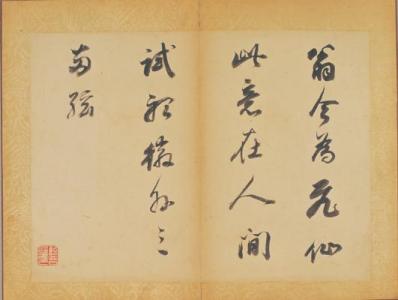 翁今為飛仙
此意在人間
試聽徽外三
兩絃